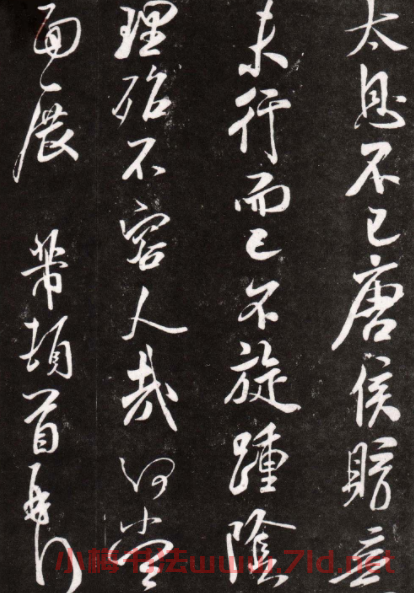 太息不已唐侯意
未行而已不旋踵陰
理殆不容人哉何當
面展 芾頓首再拜
小楷书法www.7ld.net